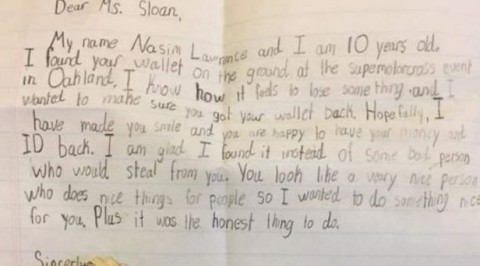 Dear Ms. Sloan,
My name Nasim Lawrance and I am 10 years old.
I found your wallet on the ground at the supermotorcross event
in Oakland. I know how it feels to lose something and I
wanted to make sure you got your wallet back. Hopefully, I
have made you smile and you are happy to have your money and
ID back. I am glad I found it instead of some bad person
who would steal from you. You look like a very nice person
who does nice things for people so I wanted to do something nice
for you. Plus it was the honest thing to do.
Sincerly